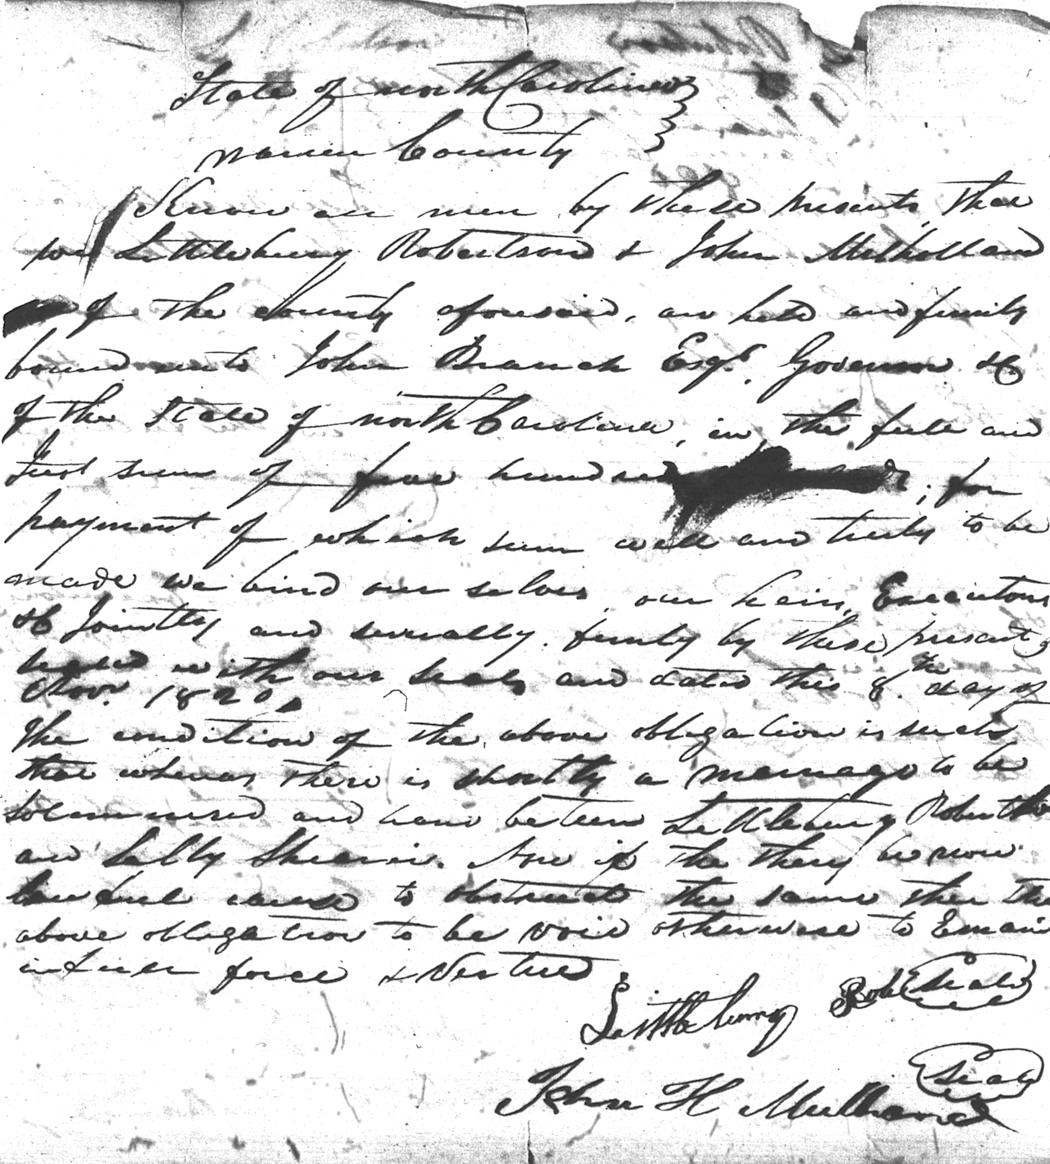 State of North Carolina
Warren County
Know all men by these presents, that
we Littlebury Robertson & John Mulholland
of the County aforesaid, are held and firmly
bound unto John Branch Esqr. Governor &c
of the State of North Carolina, in the full and
Just sum of five hundred ; for
payment of which sum well and truly to be
made we bind our selves, our heirs, Executors
&c Jointly and severally. firmly by these presents
sealed with our seals and dated this 8 the day of
Novr. 1820.
The condition of the above obligation is such
that whereas there is shortly a marriage to be
solemnized and had between Littlebury Robertson
and Sally Shearin. Now if the they be now
lawful cause to obstruct the same then the
above obligation to be void otherwise to Emain
in full force & Vertue
Littlebury Rob Seal
Seal
John H Mulhand